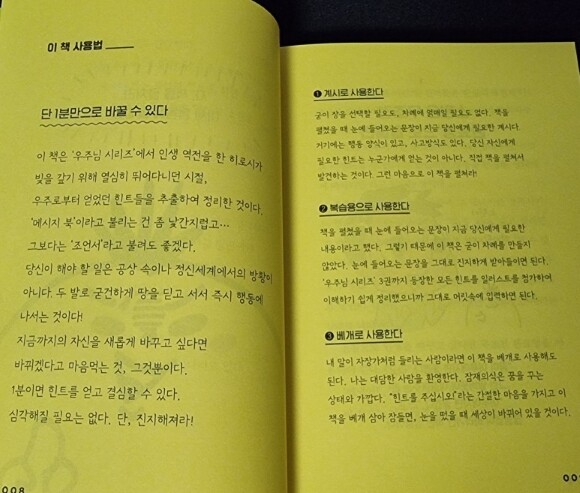 이 책 사용법
단 1분만으로 바꿀 수 있다
이 책은 '우주님 시리즈'에서 인생 역전을 한 히로시가
빚을 갚기 위해 열심히 뛰어다니던 시절,
우주로부터 얻었던 힌트들을 추출하여 정리한 것이다.
'메시지 북'이라고 불리는 건 좀 낯간지럽고…
그보다는 '조언서'라고 불려도 좋겠다.
당신이 해야 할 일은 공상 속이나 정신세계에서의 방황이
아니다. 두 발로 굳건하게 땅을 딛고 서서 즉시 행동에
나서는 것이다!
지금까지의 자신을 새롭게 바꾸고 싶다면
바뀌겠다고 마음먹는 것, 그것뿐이다.
1분이면 힌트를 얻고 결심할 수 있다.
심각해질 필요는 없다. 단, 진지해져라!
008
❶ 계시로 사용한다
굳이 장을 선택할 필요도, 차례에 얽매일 필요도 없다. 책을
펼쳤을 때 눈에 들어오는 문장이 지금 당신에게 필요한 계시다.
거기에는 행동 양식이 있고, 사고방식도 있다. 당신 자신에게
필요한 힌트는 누군가에게 얻는 것이 아니다. 직접 책을 펼쳐서
발견하는 것이다. 그런 마음으로 이 책을 펼쳐라!
❷ 복습용으로 사용한다
책을 펼쳤을 때 눈에 들어오는 문장이 지금 당신에게 필요한
내용이라고 했다. 그렇기 때문에 이 책은 굳이 차례를 만들지
않았다. 눈에 들어오는 문장을 그대로 진지하게 받아들이면 된다.
'우주님 시리즈' 3권까지 등장한 모든 힌트를 일러스트를 첨가하여
이해하기 쉽게 정리했으니까 그대로 머릿속에 입력하면 된다.
❸ 베개로 사용한다
내 말이 자장가처럼 들리는 사람이라면 이 책을 베개로 사용해도
된다. 나는 대담한 사람을 환영한다. 잠재의식은 꿈을 꾸는
상태와 가깝다. "힌트를 주십시오!"라는 간절한 마음을 가지고 이
책을 베개 삼아 잠들면, 눈을 떴을 때 세상이 바뀌어 있을 것이다.
00